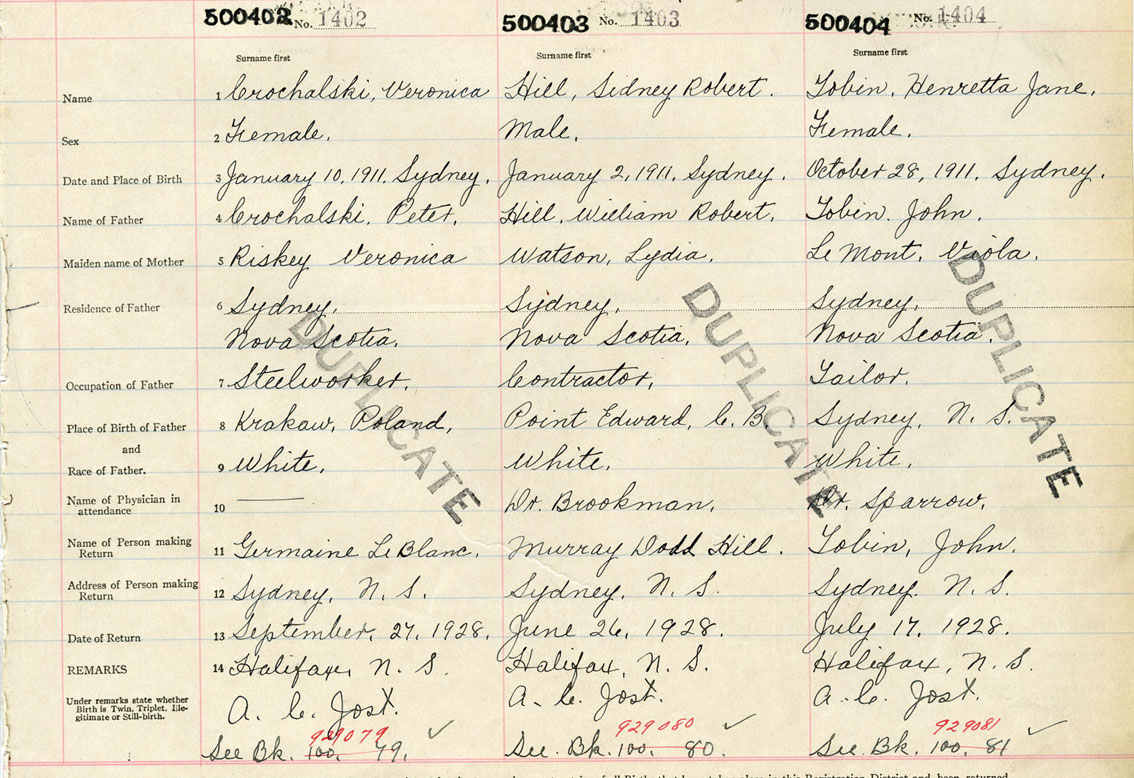 500402 No. 1402 500403 No. 1403 500404 No. 1404
Surname first Surname first Surname first
Name 1 Crochalski, Veronica Hill, Sidney Robert. Tobin, Henretta Jane.
Sex 2 Female. Male. Female.
Date and Place of Birth 3 January 10, 1911, Sydney. January 2, 1911, Sydney. October 28, 1911, Sydney.
Name of Father 4 Crochalski, Peter. Hill, William Robert. Tobin, John.
Maiden name of Mother 5 Riskey Veronica Watson, Lydia. Le Mont, Viola.
Residence of Father 6 Sydney, Sydney, Sydney,
Nova Scotia. Nova Scotia. Nova Scotia.
Occupation of Father 7 Steelworker. Contractor. Tailor.
Place of Birth of Father 8 Krakaw, Poland, Point Edward, C. B. Sydney, N. S.
and
Race of Father. 9 White. White. White.
Name of Physician in
attendance 10 Dr. Brookman. Dr. Sparrow.
Name of Person making
Return 11 Germaine Le Blanc. Murray Dodd Hill. Tobin, John.
Address of Person making
Return 12 Sydney, N. S. Sydney, N. S. Sydney. N. S.
Date of Return 13 September, 27, 1928. June 26, 1928. July 17, 1928.
REMARKS 14 Halifax, N. S. Halifax, N. S. Halifax, N. S.
Under remarks state whether
Birth is Twin, Triplet, Ille-
gitimate or Still-birth.
A. C. Jost. A. C. Jost. A. C. Jost.
929079 929080 929081
See Bk. 100. 79. See. Bk. 100. 80. See. Bk. 100. 81
DUPLICATE DUPLICATE DUPLICATE